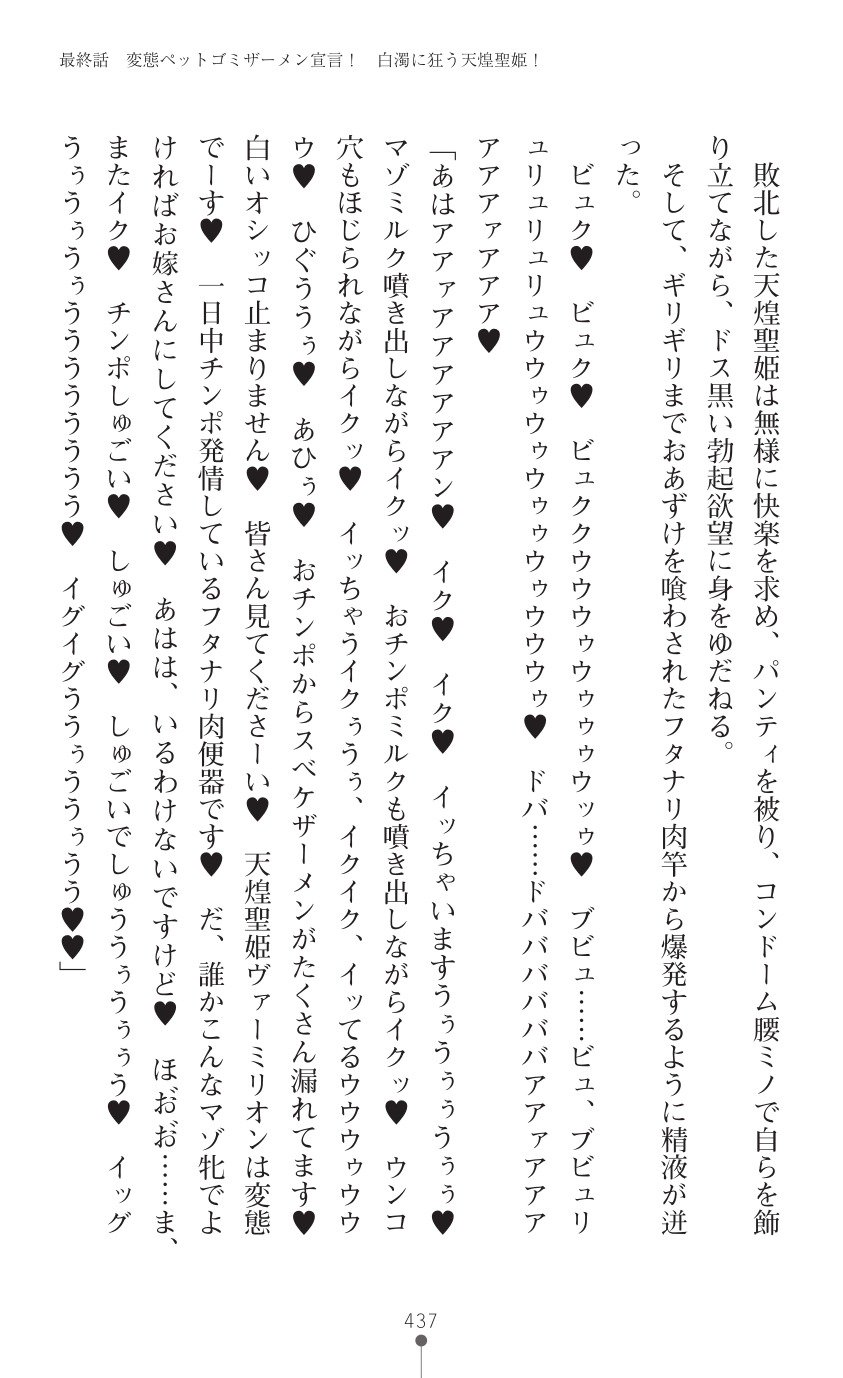 最終話　変態ペットゴミザーメン宣言！　白濁に狂う天煌聖姫！
敗北した天煌聖姫は無様に快楽を求め、パンティを被り、コンドーム腰ミノで自らを飾
り立てながら、ドス黒い勃起欲望に身をゆだねる。
そして、ギリギリまでおあずけを喰わされたフタナリ肉竿から爆発するように精液が迸
った。
ビュク♥　ビュク♥　ビュククウウウゥウゥゥゥウッゥ♥　ブビュ……ビュ、ブビュリ
ュリュリュリュウウゥウゥウゥゥウゥウウウゥ♥　ドバ……ドババババババアアァアアア
アアアァアアア♥
「あはアアァアアアアアアン♥　イク♥　イク♥　イッちゃいますうぅうぅぅうぅぅ♥
マゾミルク噴き出しながらイクッ♥　おチンポミルクも噴き出しながらイクッ♥　ウンコ
穴もほじられながらイクッ♥　イッちゃうイクぅうぅ、イクイク、イッてるウウウゥウウ
ウ♥　ひぐううぅ♥　あひぅ♥　おチンポからスベケザーメンがたくさん漏れてます♥
白いオシッコ止まりません♥　皆さん見てくださーい♥　天煌聖姫ヴァーミリオンは変態
でーす♥　一日中チンポ発情しているフタナリ肉便器です♥　だ、誰かこんなマゾ牝でよ
ければお嫁さんにしてください♥　あはは、いるわけないですけど♥　ほぉ゙ぉ゙……ま、
またイク♥　チンポしゅごい♥　しゅごい♥　しゅごいでしゅううぅうぅぅう♥　イッグ
うぅうぅうぅうううううううう♥　イグイグううぅううぅうう♥♥」
437